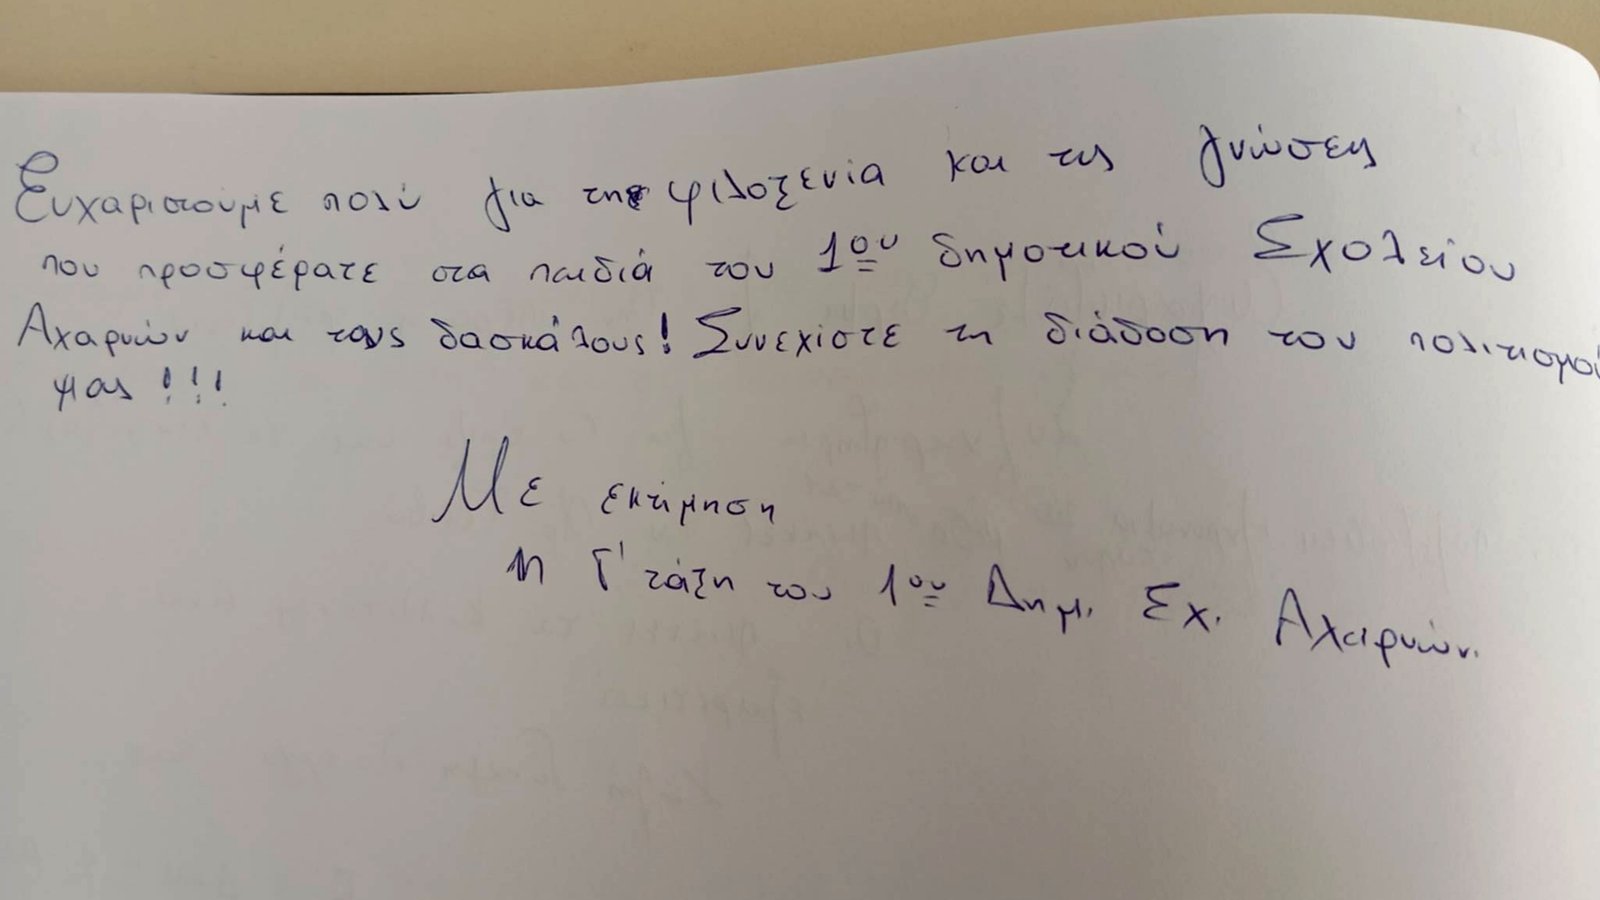 Ευχαριστούμε πολύ για τη φιλοξενία και τις γνώσεις
που προσφέρατε στα παιδιά του 1ου δημοτικού Σχολείου
Αχαρνών και τους δασκάλους! Συνεχίστε τη διάδοση του πολιτισμού
μας !!!
Με εκτίμηση
η Γ' τάξη του 1ου Δημ. Σχ. Αχαρνών.